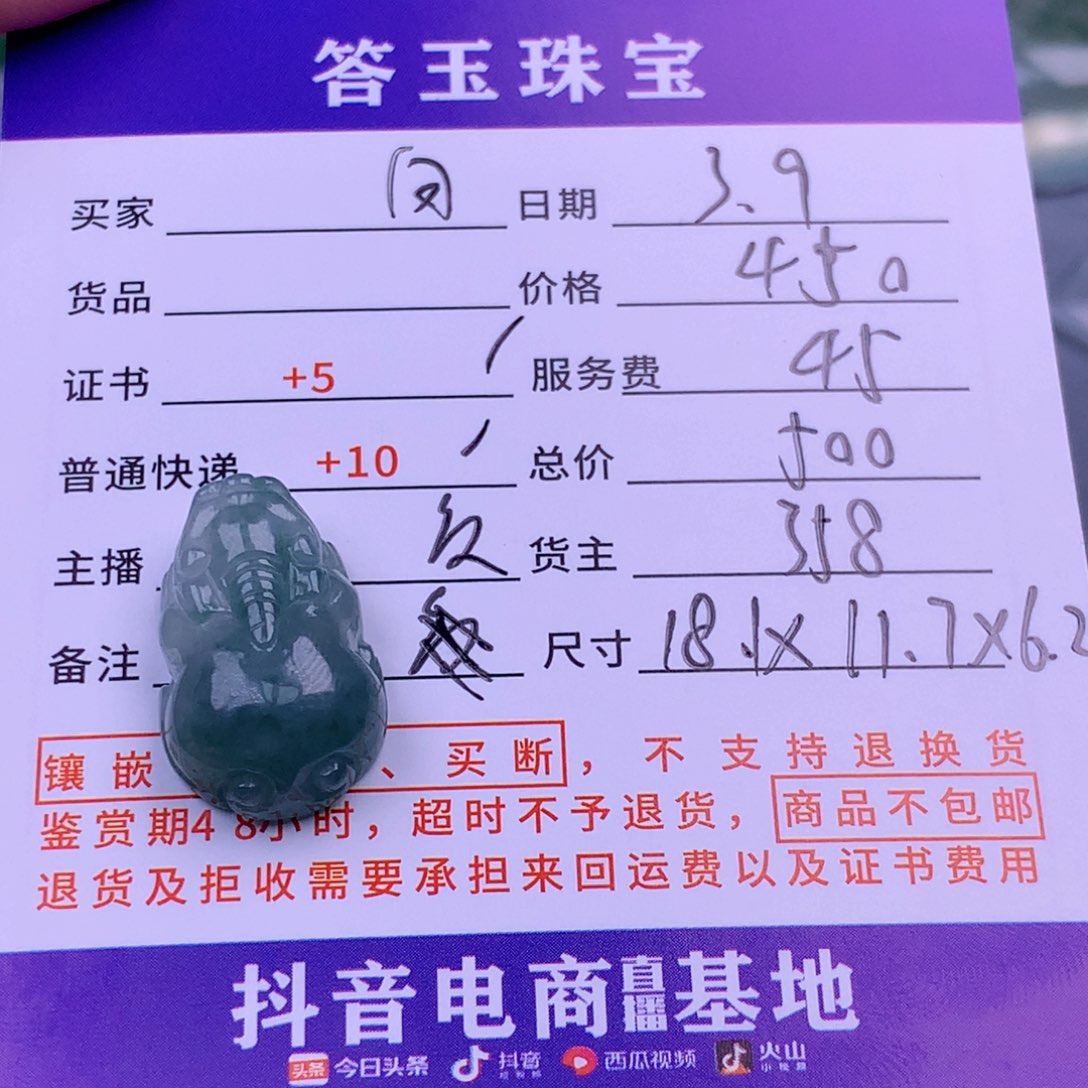 答玉珠宝
买家 日期 3.9
货品 价格 450
证书 +5 服务费 45
普通快递 +10 总价 500
主播 货主 358
备注 尺寸 18.1x11.7x6.2
镶嵌 、买断，不支持退换货
鉴赏期48小时，超时不予退货，商品不包邮
退货及拒收需要承担来回运费以及证书费用
抖音电商直播基地
头条 今日头条 抖音 西瓜视频 火山